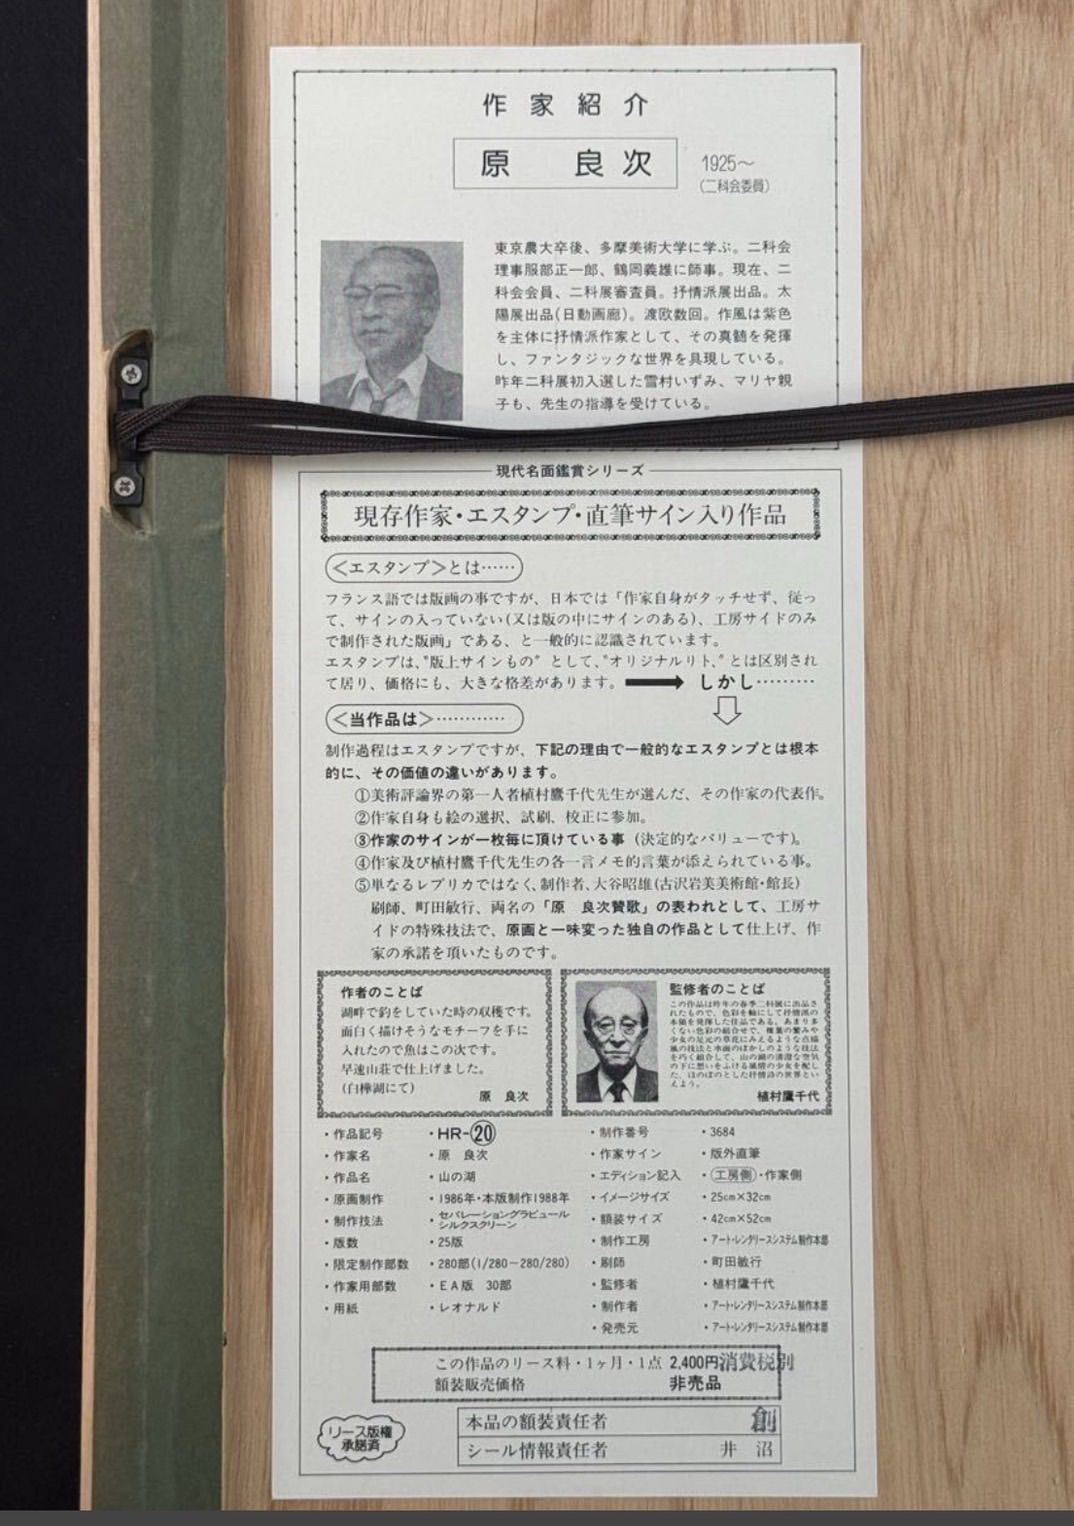 作家紹介
原 良次
1925〜
(二科会委員)
東京農大卒後、多摩美術大学に学ぶ。二科会
理事服部正一郎、鶴岡義雄に師事。現在、二
科会会員、二科展審査員。抒情派展出品。太
陽展出品(日動画廊)。渡欧数回。作風は紫色
を主体に抒情派作家として、その真髄を発揮
し、ファンタジックな世界を具現している。
昨年二科展初入選した雪村いずみ、マリヤ親
子も、先生の指導を受けている。
現代名画鑑賞シリーズ
現存作家・エスタンプ・直筆サイン入り作品
<エスタンプ>とは……
フランス語では版画の事ですが、日本では「作家自身がタッチせず、従っ
て、サインの入っていない(又は版の中にサインのある)、工房サイドのみ
で制作された版画」である、と一般的に認識されています。
エスタンプは、"版上サインもの" として、"オリジナルリト、" とは区別され
て居り、価格にも、大きな格差があります。 ➡ しかし………
<当作品は>…………
制作過程はエスタンプですが、下記の理由で一般的なエスタンプとは根本
的に、その価値の違いがあります。
①美術評論界の第一人者植村鷹千代先生が選んだ、その作家の代表作。
②作家自身も絵の選択、試刷、校正に参加。
③作家のサインが一枚毎に頂けている事 (決定的なバリューです)。
④作家及び植村鷹千代先生の各一言メモ的言葉が添えられている事。
⑤単なるレプリカではなく、制作者、大谷昭雄(古沢岩美美術館・館長)
刷師、町田敏行、両名の「原 良次賛歌」の表われとして、工房サ
イドの特殊技法で、原画と一味変った独自の作品として仕上げ、作
家の承諾を頂いたものです。
作者のことば
湖畔で釣をしていた時の収穫です。
面白く描けそうなモチーフを手に
入れたので魚はこの次です。
早速山荘で仕上げました。
(白樺湖にて)
原 良次
監修者のことば
この作品は昨年の春季二科展に出品さ
れたもので、色彩を軸にして抒情派の
本領を発揮した佳品である。あまり多
くない色彩の組合せで、種葉の繁みや
少女の足元の草花にみえるような点描
風の技法と水面のぼかしのような技法
を巧く組合して、山の湖の清澄な空気
の下に想いをふける風情の少女を配し
た、ほのぼのとした抒情詩の世界とい
えよう。
植村鷹千代
・作品記号 ・HR-⑳
・作家名 ・原 良次
・作品名 ・山の湖
・原画制作 ・1986年・本版制作1988年
・制作技法 ・セパレーショングラビュール
シルクスクリーン
・版数 ・25版
・限定制作部数 ・280部(1/280−280/280)
・作家用部数 ・EA版 30部
・用紙 ・レオナルド
・制作番号 ・3684
・作家サイン ・版外直筆
・エディション記入 ・工房側・作家側
・イメージサイズ ・25cm×32cm
・額装サイズ ・42cm×52cm
・制作工房 ・アート・レンタリースシステム制作本部
・刷師 ・町田敏行
・監修者 ・植村鷹千代
・制作者 ・アート・レンタリースシステム制作本部
・発売元 ・アート・レンタリースシステム制作本部
この作品のリース料・1ヶ月・1点 2,400円消費税別
額装販売価格 非売品
リース版権
承諾済
本品の額装責任者 創
シール情報責任者 井 沼